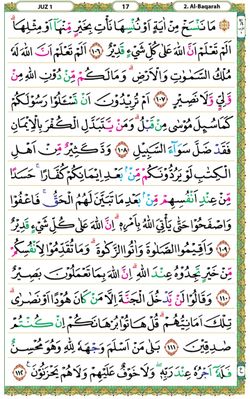 JUZ 1 17 2. Al-Baqarah
مَا نَنْسَخْ مِنْ اٰيَةٍ اَوْ نُنْسِهَا نَأْتِ بِخَيْرٍ مِّنْهَآ اَوْ مِثْلِهَا ۗ
اَلَمْ تَعْلَمْ اَنَّ اللّٰهَ عَلٰى كُلِّ شَيْءٍ قَدِيْرٌ ١٠٦ اَلَمْ تَعْلَمْ اَنَّ اللّٰهَ لَهٗ
مُلْكُ السَّمٰوٰتِ وَالْاَرْضِ ۗ وَمَا لَكُمْ مِّنْ دُوْنِ اللّٰهِ مِنْ
وَّلِيٍّ وَّلَا نَصِيْرٍ ١٠٧ اَمْ تُرِيْدُوْنَ اَنْ تَسْـَٔلُوْا رَسُوْلَكُمْ
كَمَا سُىِٕلَ مُوْسٰى مِنْ قَبْلُ ۗ وَمَنْ يَّتَبَدَّلِ الْكُفْرَ بِالْاِيْمَانِ
فَقَدْ ضَلَّ سَوَاۤءَ السَّبِيْلِ ١٠٨ وَدَّ كَثِيْرٌ مِّنْ اَهْلِ
الْكِتٰبِ لَوْ يَرُدُّوْنَكُمْ مِّنْۢ بَعْدِ اِيْمَانِكُمْ كُفَّارًا ۚ حَسَدًا
مِّنْ عِنْدِ اَنْفُسِهِمْ مِّنْۢ بَعْدِ مَا تَبَيَّنَ لَهُمُ الْحَقُّ ۚ فَاعْفُوْا
وَاصْفَحُوْا حَتّٰى يَأْتِيَ اللّٰهُ بِاَمْرِهٖ ۗ اِنَّ اللّٰهَ عَلٰى كُلِّ شَيْءٍ قَدِيْرٌ
١٠٩ وَاَقِيْمُوا الصَّلٰوةَ وَاٰتُوا الزَّكٰوةَ ۗ وَمَا تُقَدِّمُوْا لِاَنْفُسِكُمْ
مِّنْ خَيْرٍ تَجِدُوْهُ عِنْدَ اللّٰهِ ۗ اِنَّ اللّٰهَ بِمَا تَعْمَلُوْنَ بَصِيْرٌ
١١٠ وَقَالُوْا لَنْ يَّدْخُلَ الْجَنَّةَ اِلَّا مَنْ كَانَ هُوْدًا اَوْ نَصٰرٰى ۗ
تِلْكَ اَمَانِيُّهُمْ ۗ قُلْ هَاتُوْا بُرْهَانَكُمْ اِنْ كُنْتُمْ
صٰدِقِيْنَ ١١١ بَلٰى مَنْ اَسْلَمَ وَجْهَهٗ لِلّٰهِ وَهُوَ مُحْسِنٌ
فَلَهٗٓ اَجْرُهٗ عِنْدَ رَبِّهٖ ۖ وَلَا خَوْفٌ عَلَيْهِمْ وَلَا هُمْ يَحْزَنُوْنَ ١١٢